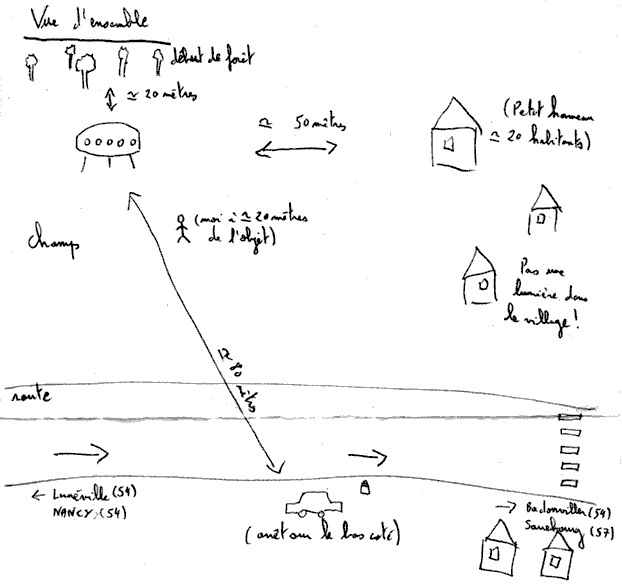 Vue d'ensemble
début de forêt
≃ 20 mètres
≃ 50 mètres
(Petit hameau
≃ 20 habitants)
(moi à ≃ 20 mètres
de l'objet)
champs
Pas une
lumière dans
le village !
80
route
← Lunéville (54)
NANCY (54)
(arrêt sur le bas coté)
→ Badonviller (54)
Sarrebourg (57)